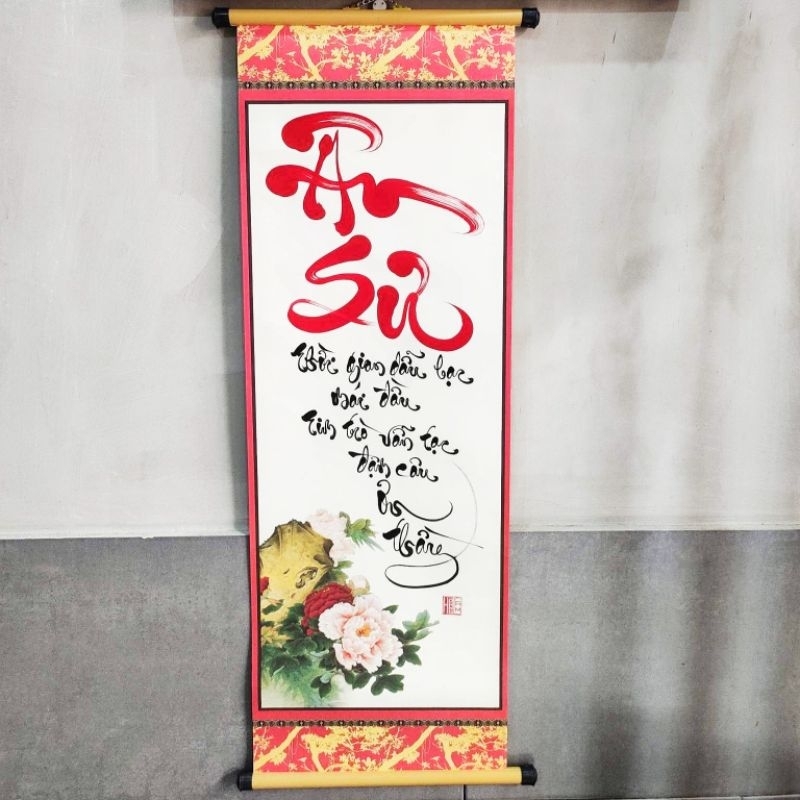 Ân
Sư
Thời gian dẫu bạc
mái đầu
Tim trò vẫn tạc
đậm câu
ơn
thầy